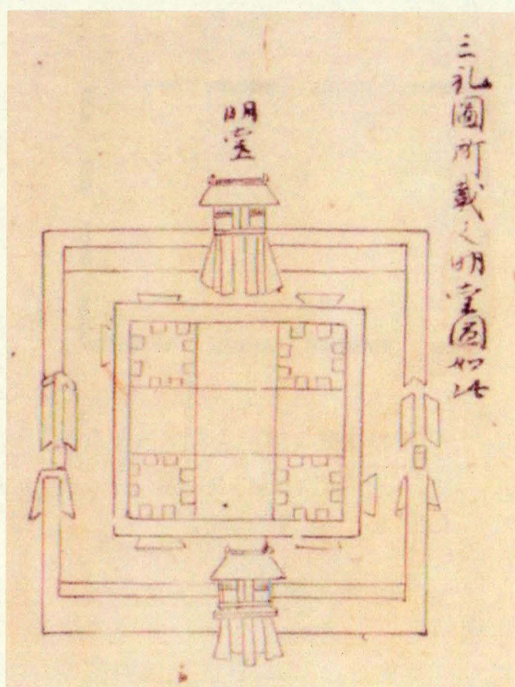 三礼圖所載之明堂圖如此
明堂